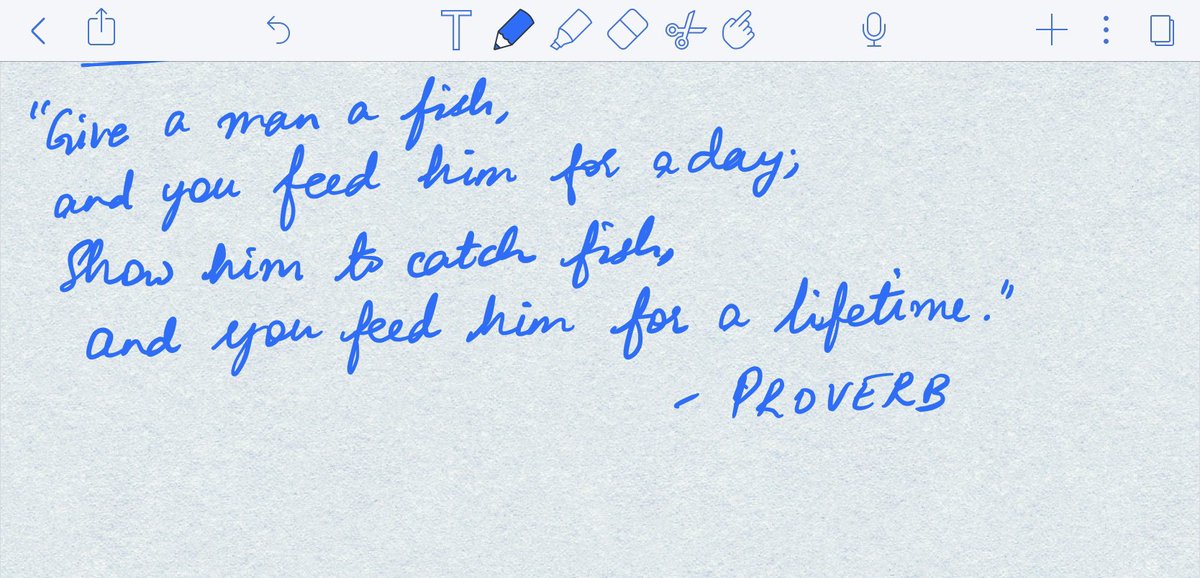 "Give a man a fish,
and you feed him for a day;
Show him to catch fish,
and you feed him for a lifetime."
- PROVERB